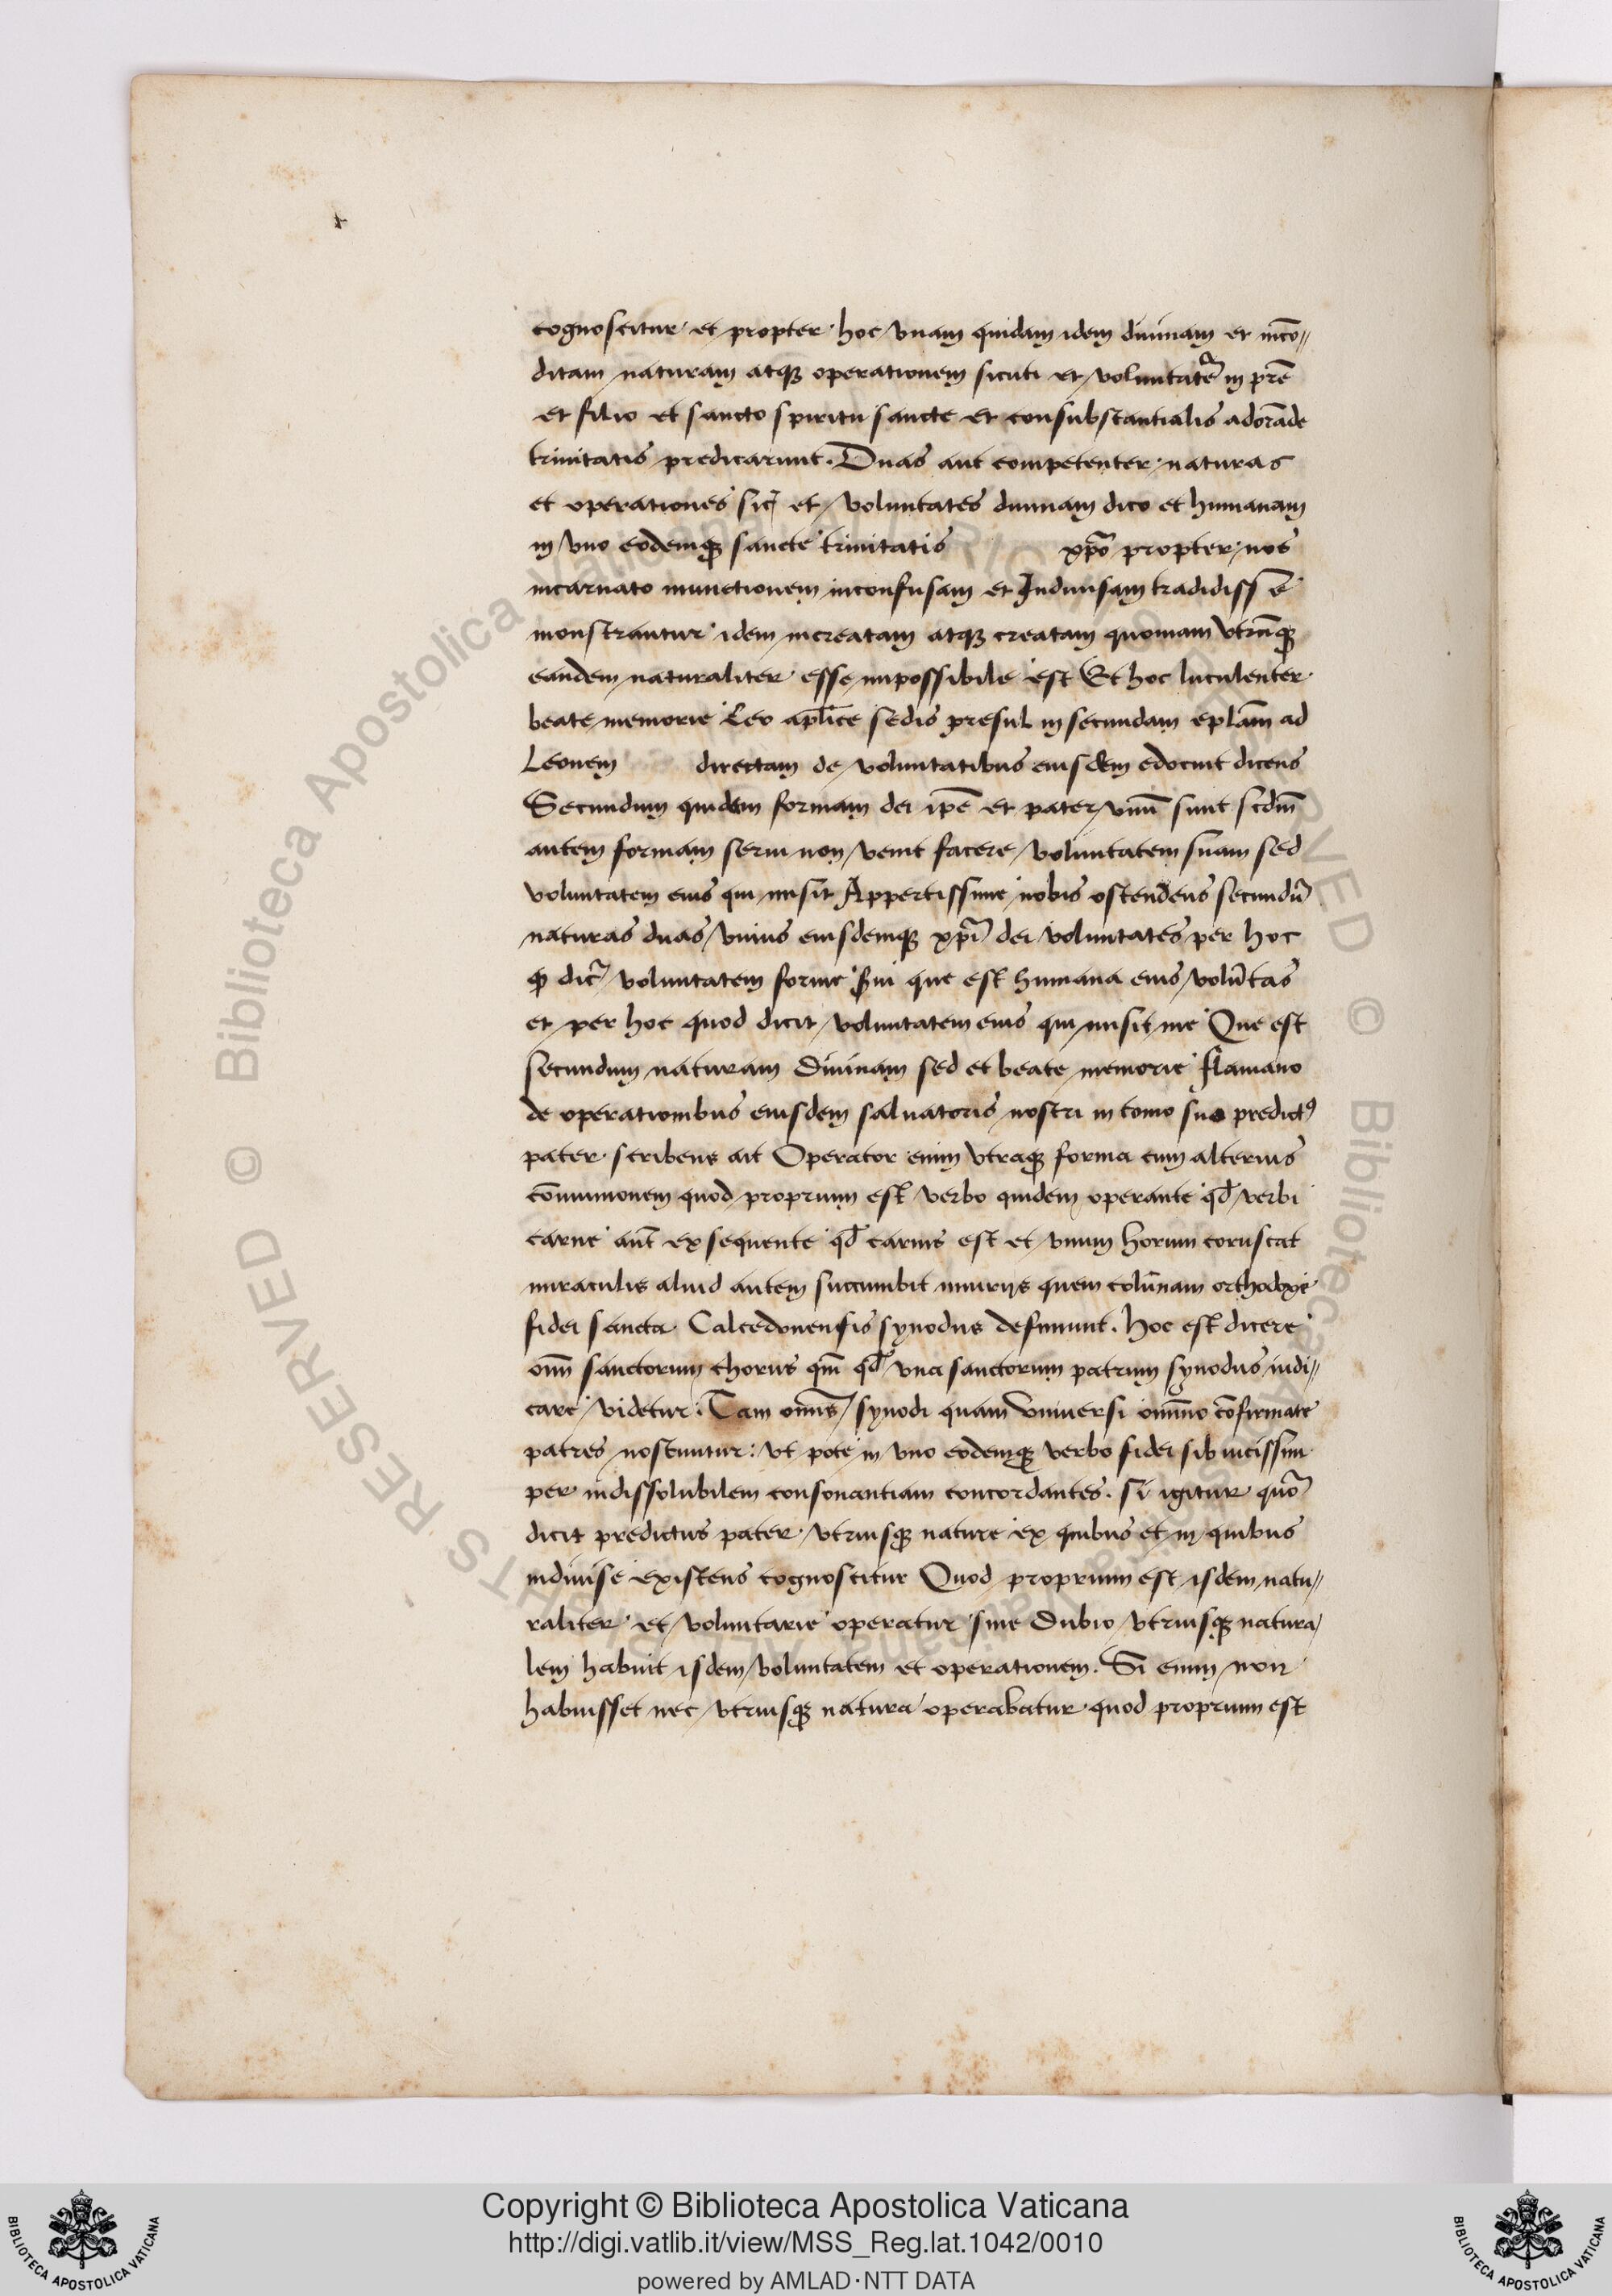 cognoscitur et propter hoc vnam quidam idem diuinam et incō〃
ditam naturam atqꝫ operationem sicuti et voluntatē in prē
et filio et sancto spiritu sancte et consubstantialis adorāde
trinitatis predicarunt. Duas aut competenter naturas
et operationes sic et voluntates diuinam dico et humanam
in vno eodemqꝫ sancte trinitatis xp̄o propter nos
incarnato inunctionem inconfusam et Indiuisam tradidisse
monstrantur idem increatam atqꝫ creatam quoniam vtrūqꝫ
eandem naturaliter esse impossibile est Et hoc luculenter
beate memorie Leo aplice sedis presul in secundam eplam ad
Leonem directam de voluntatibus eiusdem edocuit dicens
Secundum quidem formam dei ipē et pater vnū sunt scdm̄
autem formam serui non venit facere voluntatem suam sed
voluntatem eius qui misit Appertissime nobis ostendens secundū
naturas duas vnius eiusdemqꝫ xp̄i dei voluntates per hoc
ꝙ dicr̄ voluntatem forme s̄ui que est humana eius volūtas
et per hoc quod dicit voluntatem eius qui misit me Que est
secundum naturam diuinam sed et beate memorie flamano
de operationibus eiusdem saluatoris nostri in tomo suo predictꝰ
pater scribens ait Operator enim vtraqꝫ forma cum alterius
cōmunionem quod proprium est verbo quidem operante qd̄ verbi
carne aūt exsequente qd̄ carnis est et vnum horum coruscat
miraculis aliud autem succumbit iniurijs quem colūnam orthodoxe
fidei sancta Calcedonensis synodus definiunt. hoc est dicere
omī sanctorum chorus qm̄ qd̄ vna sanctorum patrum synodus iudi〃
care videtur. Tam omīs synodi quam vniuersi omīno cōfirmate
patres noscuntur: vt pote in vno eodemqꝫ verbo fidei sib uicissim
per indissolubilem consonantiam concordantes. si igitur quō
dicit predictus pater vtriusqꝫ nature ex quibus et in quibus
indiuise existens cognoscitur Quod proprium est isdem natu〃
raliter et voluntarie operatur sine dubio vtriusqꝫ natura/
lem habuit isdem voluntatem et operationem. Si enim non
habuisset nec vtriusqꝫ natura operabatur quod proprium est
Copyright © Biblioteca Apostolica Vaticana
http://digi.vatlib.it/view/MSS_Reg.lat.1042/0010
powered by AMLAD·NTT DATA